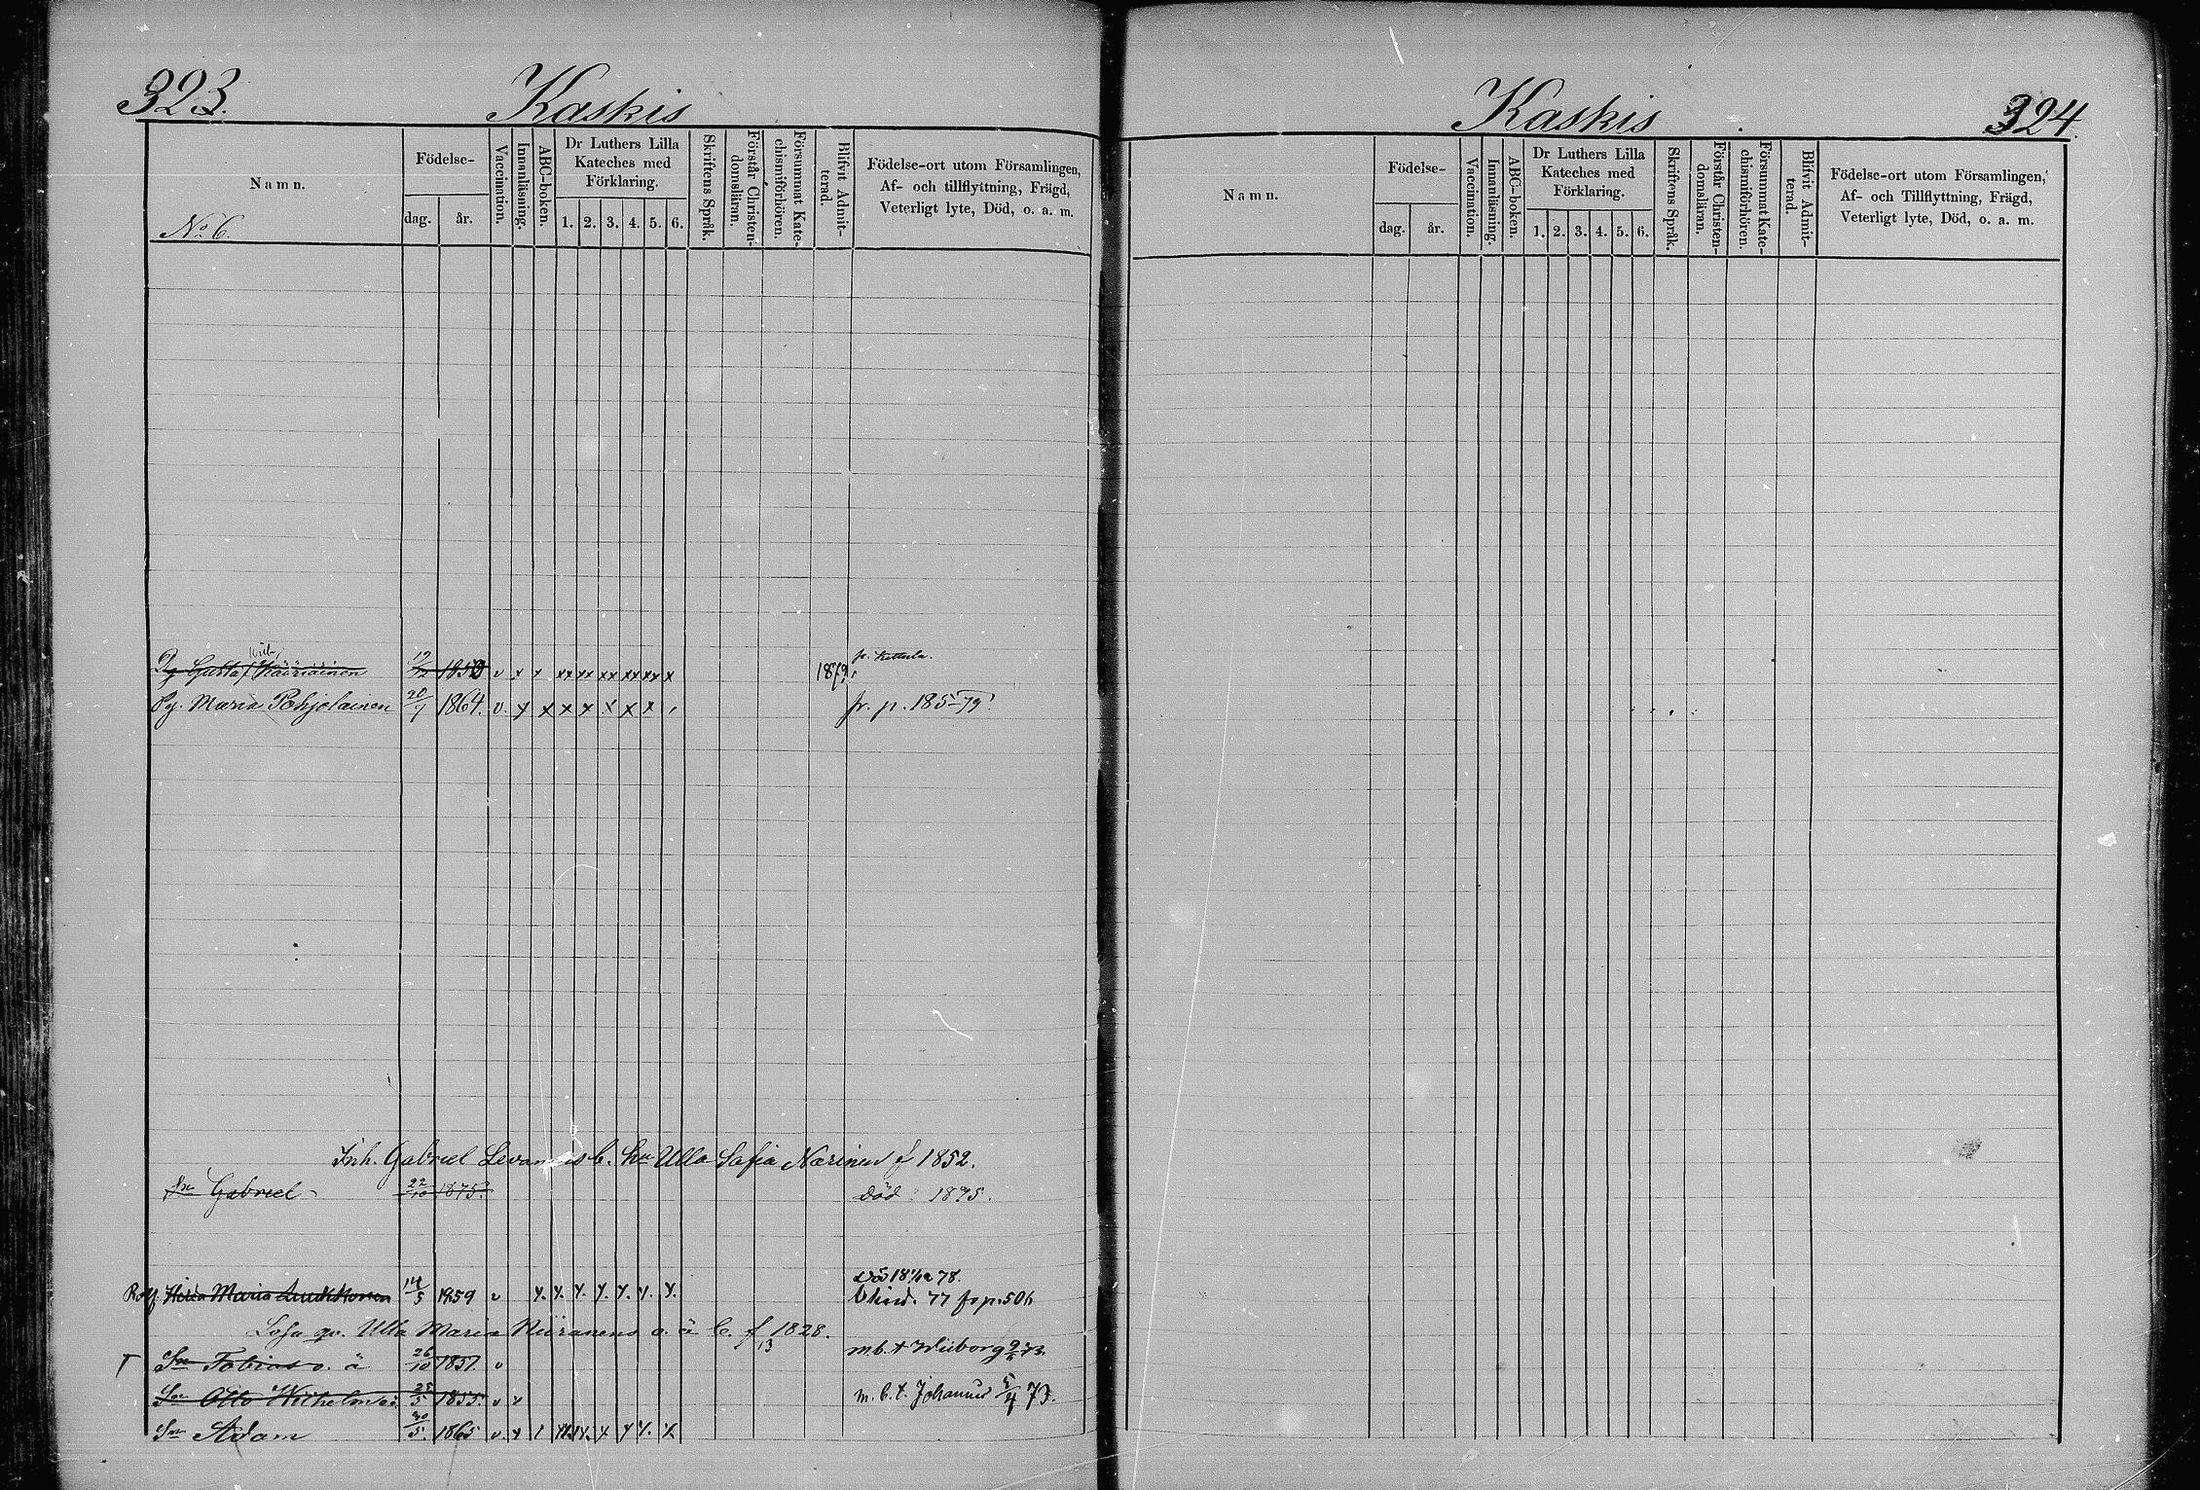 323.
Kaskis
Namn.
No 6.
Födelse-
dag. år.
Vaccination.
Innanläsning.
ABC-boken.
Dr Luthers Lilla
Kateches med
Förklaring.
1. 2. 3. 4. 5. 6.
Skriftens Språk.
Förstår Christen-
domsläran.
Försummat Kate-
chismiförhören.
Blifvit Admit-
terad.
Födelse-ort utom Församlingen,
Af- och tillflyttning, Frägd,
Veterligt lyte, Död, o. a. m.
Gustaf Kääriäinen 19/12 1850 v x x xx xx xx xx xx x 1879
Pg. Maria Pohjolainen 20/7 1864. v. x x x x x x x fr. p. 185-79
Inh. Gabriel Levanens b. hu Ulla Sofia Narinen f 1852.
Sn Gabriel 22/10 1875. död 1875.
Maria 14/5 1859 v x. x. x. x. x. x. x. 77 fr p. 506
Ulla Maria Niiranens o. ä b. f 1828.
13
Sn Tobias o. ä 26/10 1851. v m.b.t Wiborg
Sn Otto Wilhelm o ä 25/5 1855. v x m. b. t. Johannes 5/4 73.
Sn Adam 30/5. 1865 v. x
Kaskis
324.
Namn.
Födelse-
dag. år.
Vaccination.
Innanläsning.
ABC-boken.
Dr Luthers Lilla
Kateches med
Förklaring.
1. 2. 3. 4. 5. 6.
Skriftens Språk.
Förstår Christen-
domsläran.
Försummat Kate-
chismiförhören.
Blifvit Admit-
terad.
Födelse-ort utom Församlingen,
Af- och Tillflyttning, Frägd,
Veterligt lyte, Död, o. a. m.